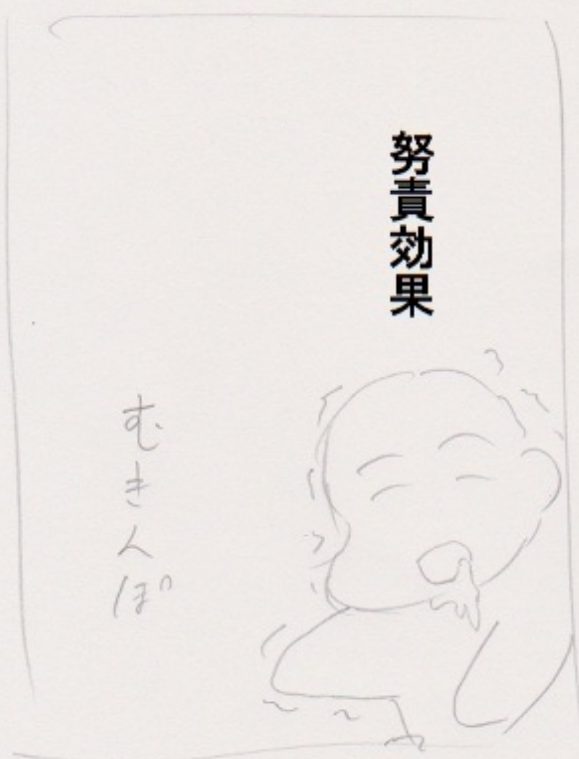 努責効果
むきんぽ